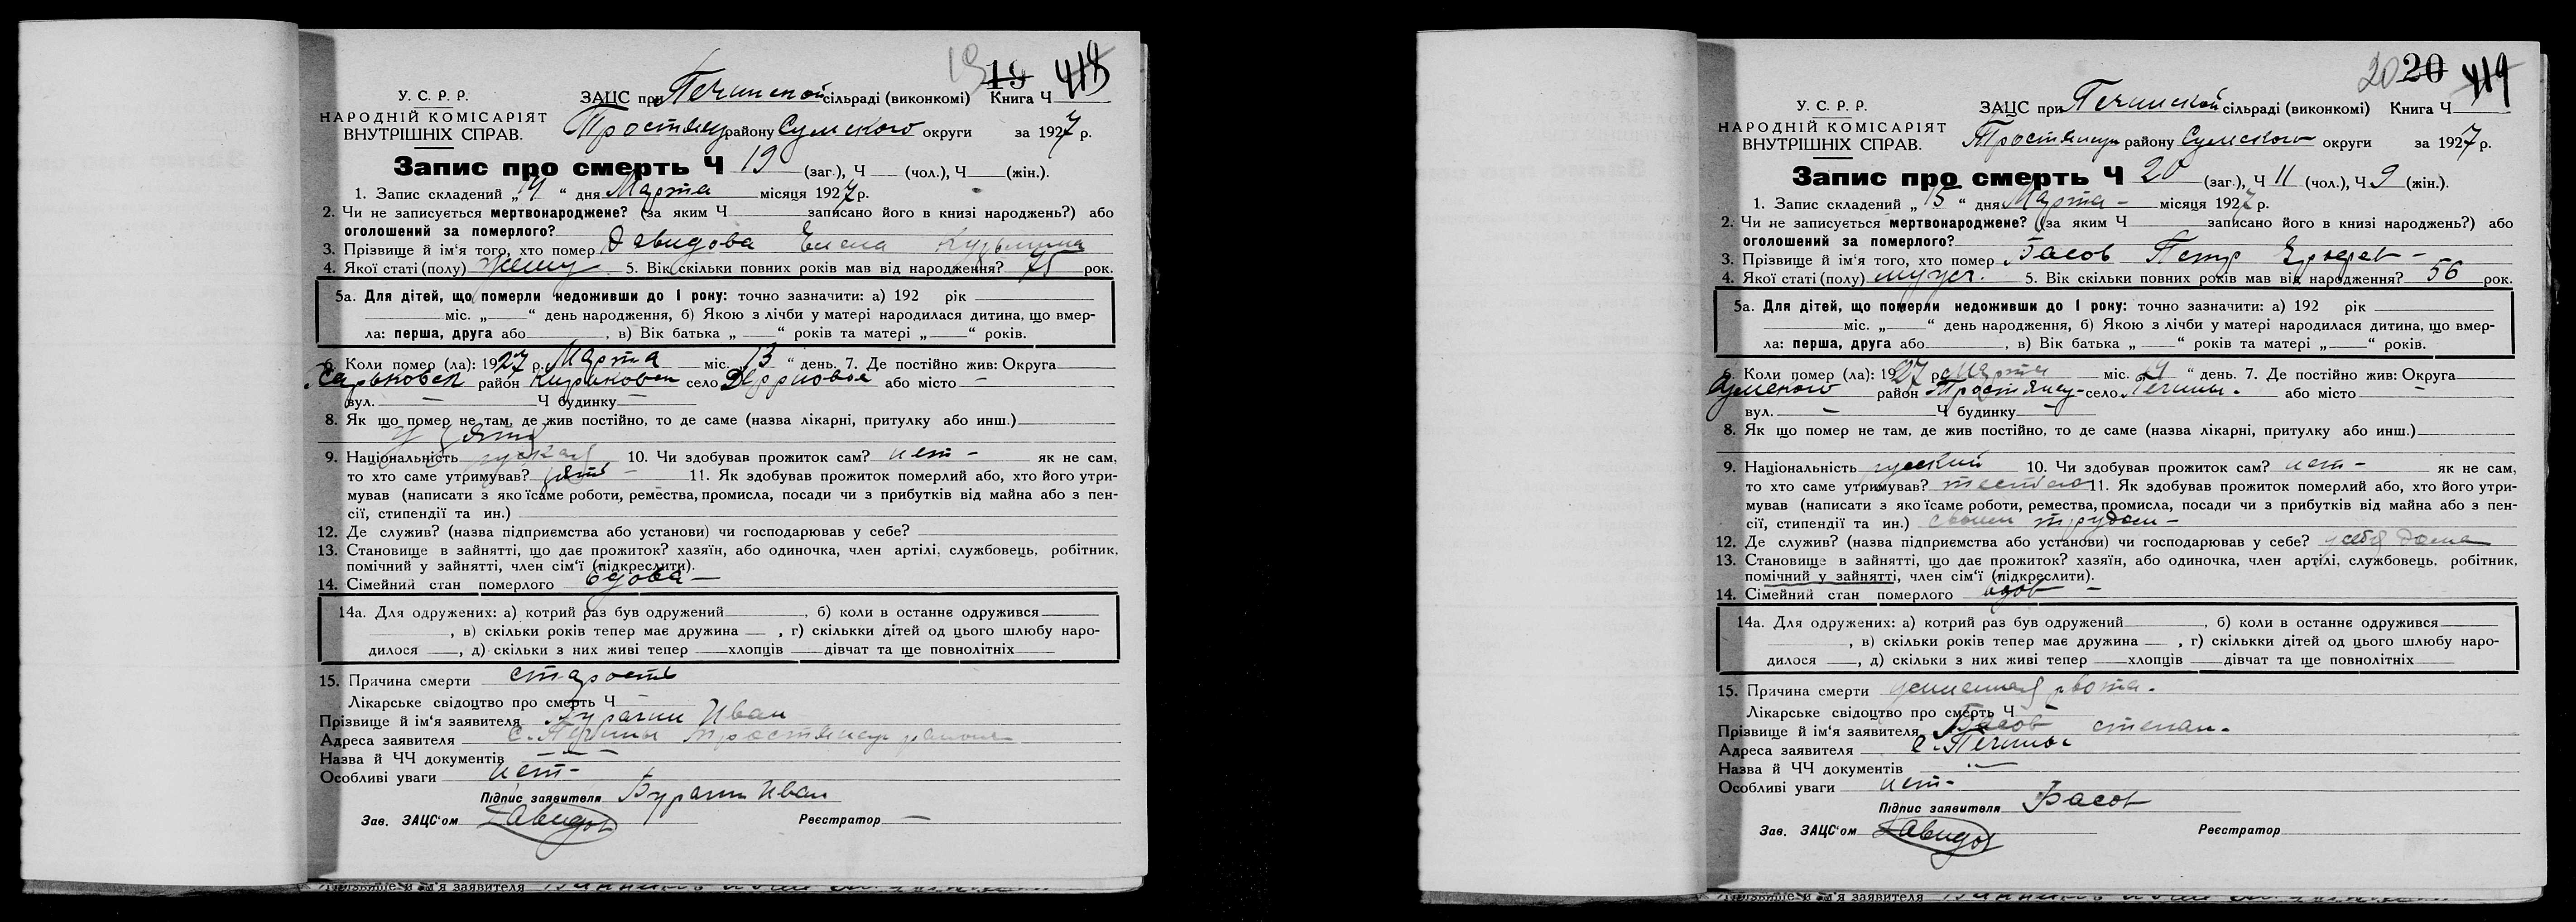 19 19 418
У. С. Р. Р.
НАРОДНІЙ КОМІСАРІЯТ
ВНУТРІШНІХ СПРАВ.
ЗАЦС при Печинской сільраді (виконкомі) Книга Ч
Тростянец району Сумского округи за 1927 р.
Запис про смерть Ч 19 (заг.), Ч (чол.), Ч (жін.).
1. Запис складений „14“ дня Марта місяця 1927 р.
2. Чи не записується мертвонароджене? (за яким Ч записано його в книзі народжень?) або
оголошений за померлого?
3. Прізвище й ім‘я того, хто помер Давидова Елена
4. Якої статі (полу) женщ 5. Вік скільки повних років мав від народження? 75 рок.
5а. Для дітей, що померли недоживши до 1 року: точно зазначити: а) 192 рік
міс. „ “ день народження, б) Якою з лічби у матері народилася дитина, що вмер-
ла: перша, друга або , в) Вік батька „ “ років та матері „ “ років.
6. Коли помер (ла): 1927 р. Марта міс. 13 “ день. 7. Де постійно жив: Округа
Харьковск район село або місто –
вул. – Ч будинку –
8. Як що помер не там, де жив постійно, то де саме (назва лікарні, притулку або инш.)
У зятя
9. Національність руская 10. Чи здобував прожиток сам? нет – як не сам,
то хто саме утримував? зять – 11. Як здобував прожиток померлий або, хто його утри-
мував (написати з якоїсаме роботи, ремества, промисла, посади чи з прибутків від майна або з пен-
сії, стипендії та ин.)
12. Де служив? (назва підприємства або установи) чи господарював у себе?
13. Становище в зайнятті, що дає прожиток? хазяїн, або одиночка, член артілі, службовець, робітник,
помічний у зайнятті, член сім‘ї (підкреслити).
14. Сімейний стан померлого вдова –
14а. Для одружених: а) котрий раз був одружений , б) коли в останнє одружився
, в) скільки років тепер має дружина , г) скількки дітей од цього шлюбу наро-
дилося , д) скільки з них живі тепер хлопців дівчат та ще повнолітніх
15. Причина смерти старость
Лікарське свідоцтво про смерть Ч
Прізвище й ім‘я заявителя Иван
Адреса заявителя с. Печины Тростянец района
Назва й ЧЧ документів
Особливі уваги нет –
Підпис заявителя Иван
Зав. ЗАЦС‘ом Давидов Реєстратор –
Прізвище й ім‘я заявителя
20 20 419
У. С. Р. Р.
НАРОДНІЙ КОМІСАРІЯТ
ВНУТРІШНІХ СПРАВ.
ЗАЦС при Печинской сільраді (виконкомі) Книга Ч
Тростянец району Сумского округи за 1927 р.
Запис про смерть Ч 20 (заг.), Ч 11 (чол.), Ч 9 (жін.).
1. Запис складений „15“ дня Марта – місяця 1927 р.
2. Чи не записується мертвонароджене? (за яким Ч записано його в книзі народжень?) або
оголошений за померлого?
3. Прізвище й ім‘я того, хто помер Басов Петр
4. Якої статі (полу) мужч. 5. Вік скільки повних років мав від народження? 56 рок.
5а. Для дітей, що померли недоживши до 1 року: точно зазначити: а) 192 рік
міс. „ “ день народження, б) Якою з лічби у матері народилася дитина, що вмер-
ла: перша, друга або , в) Вік батька „ “ років та матері „ “ років.
6. Коли помер (ла): 1927 р. Марта міс. 14 “ день. 7. Де постійно жив: Округа
Сумского район Тростянец – село Печины. або місто –
вул. – Ч будинку –
8. Як що помер не там, де жив постійно, то де саме (назва лікарні, притулку або инш.)
9. Національність русский 10. Чи здобував прожиток сам? нет – як не сам,
то хто саме утримував? 11. Як здобував прожиток померлий або, хто його утри-
мував (написати з якоїсаме роботи, ремества, промисла, посади чи з прибутків від майна або з пен-
сії, стипендії та ин.) своим трудом –
12. Де служив? (назва підприємства або установи) чи господарював у себе? у себя дома
13. Становище в зайнятті, що дає прожиток? хазяїн, або одиночка, член артілі, службовець, робітник,
помічний у зайнятті, член сім‘ї (підкреслити).
14. Сімейний стан померлого вдов –
14а. Для одружених: а) котрий раз був одружений , б) коли в останнє одружився
, в) скільки років тепер має дружина , г) скількки дітей од цього шлюбу наро-
дилося , д) скільки з них живі тепер хлопців дівчат та ще повнолітніх
15. Причина смерти рвота.
Лікарське свідоцтво про смерть Ч –
Прізвище й ім‘я заявителя Басов степан.
Адреса заявителя с. Печины
Назва й ЧЧ документів –
Особливі уваги нет –
Підпис заявителя Басов
Зав. ЗАЦС‘ом Давидов Реєстратор
Прізвище й ім‘я заявителя